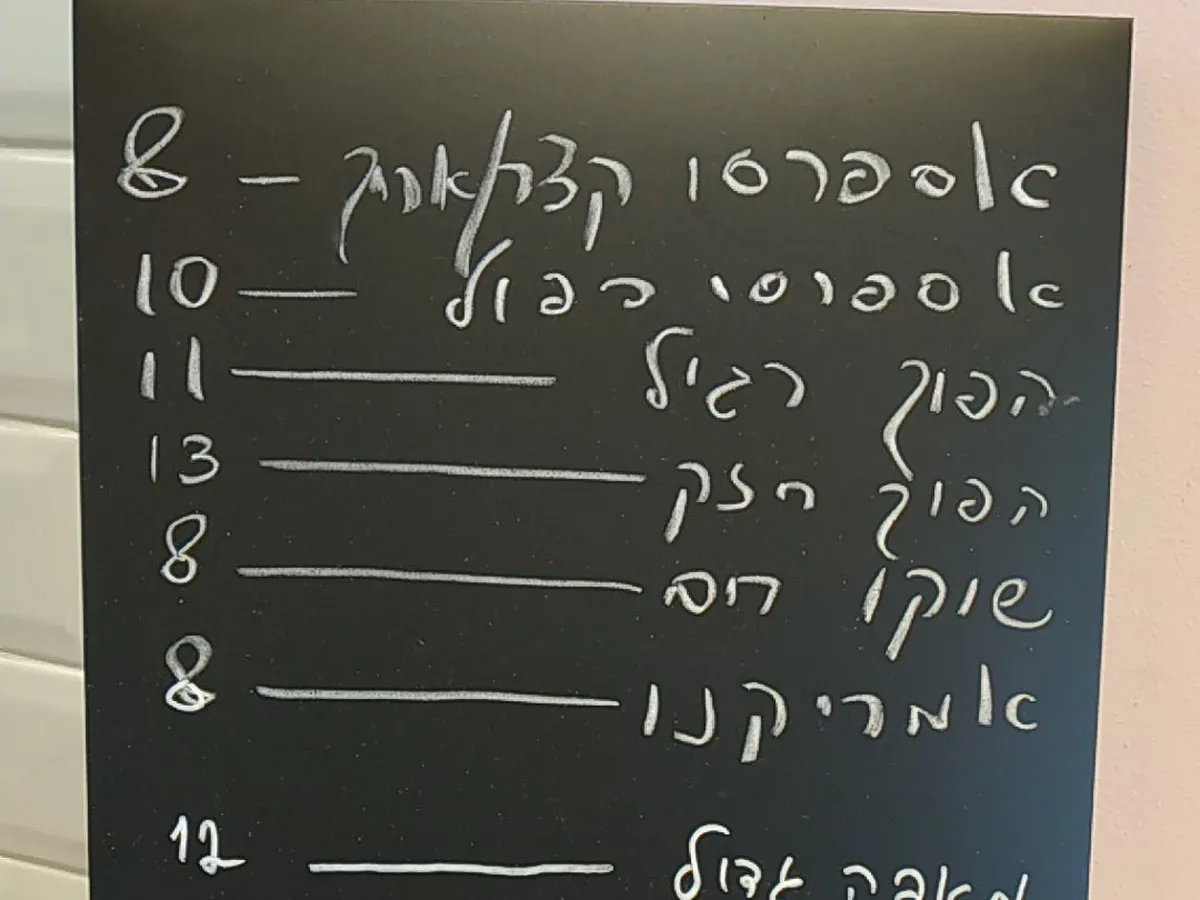 אספרסו קצר/ארוך – 8
אספרסו כפול — 10
הפוך רגיל — 11
הפוך חזק — 13
שוקו חם — 8
אמריקנו — 8
מאפה גדול — 12